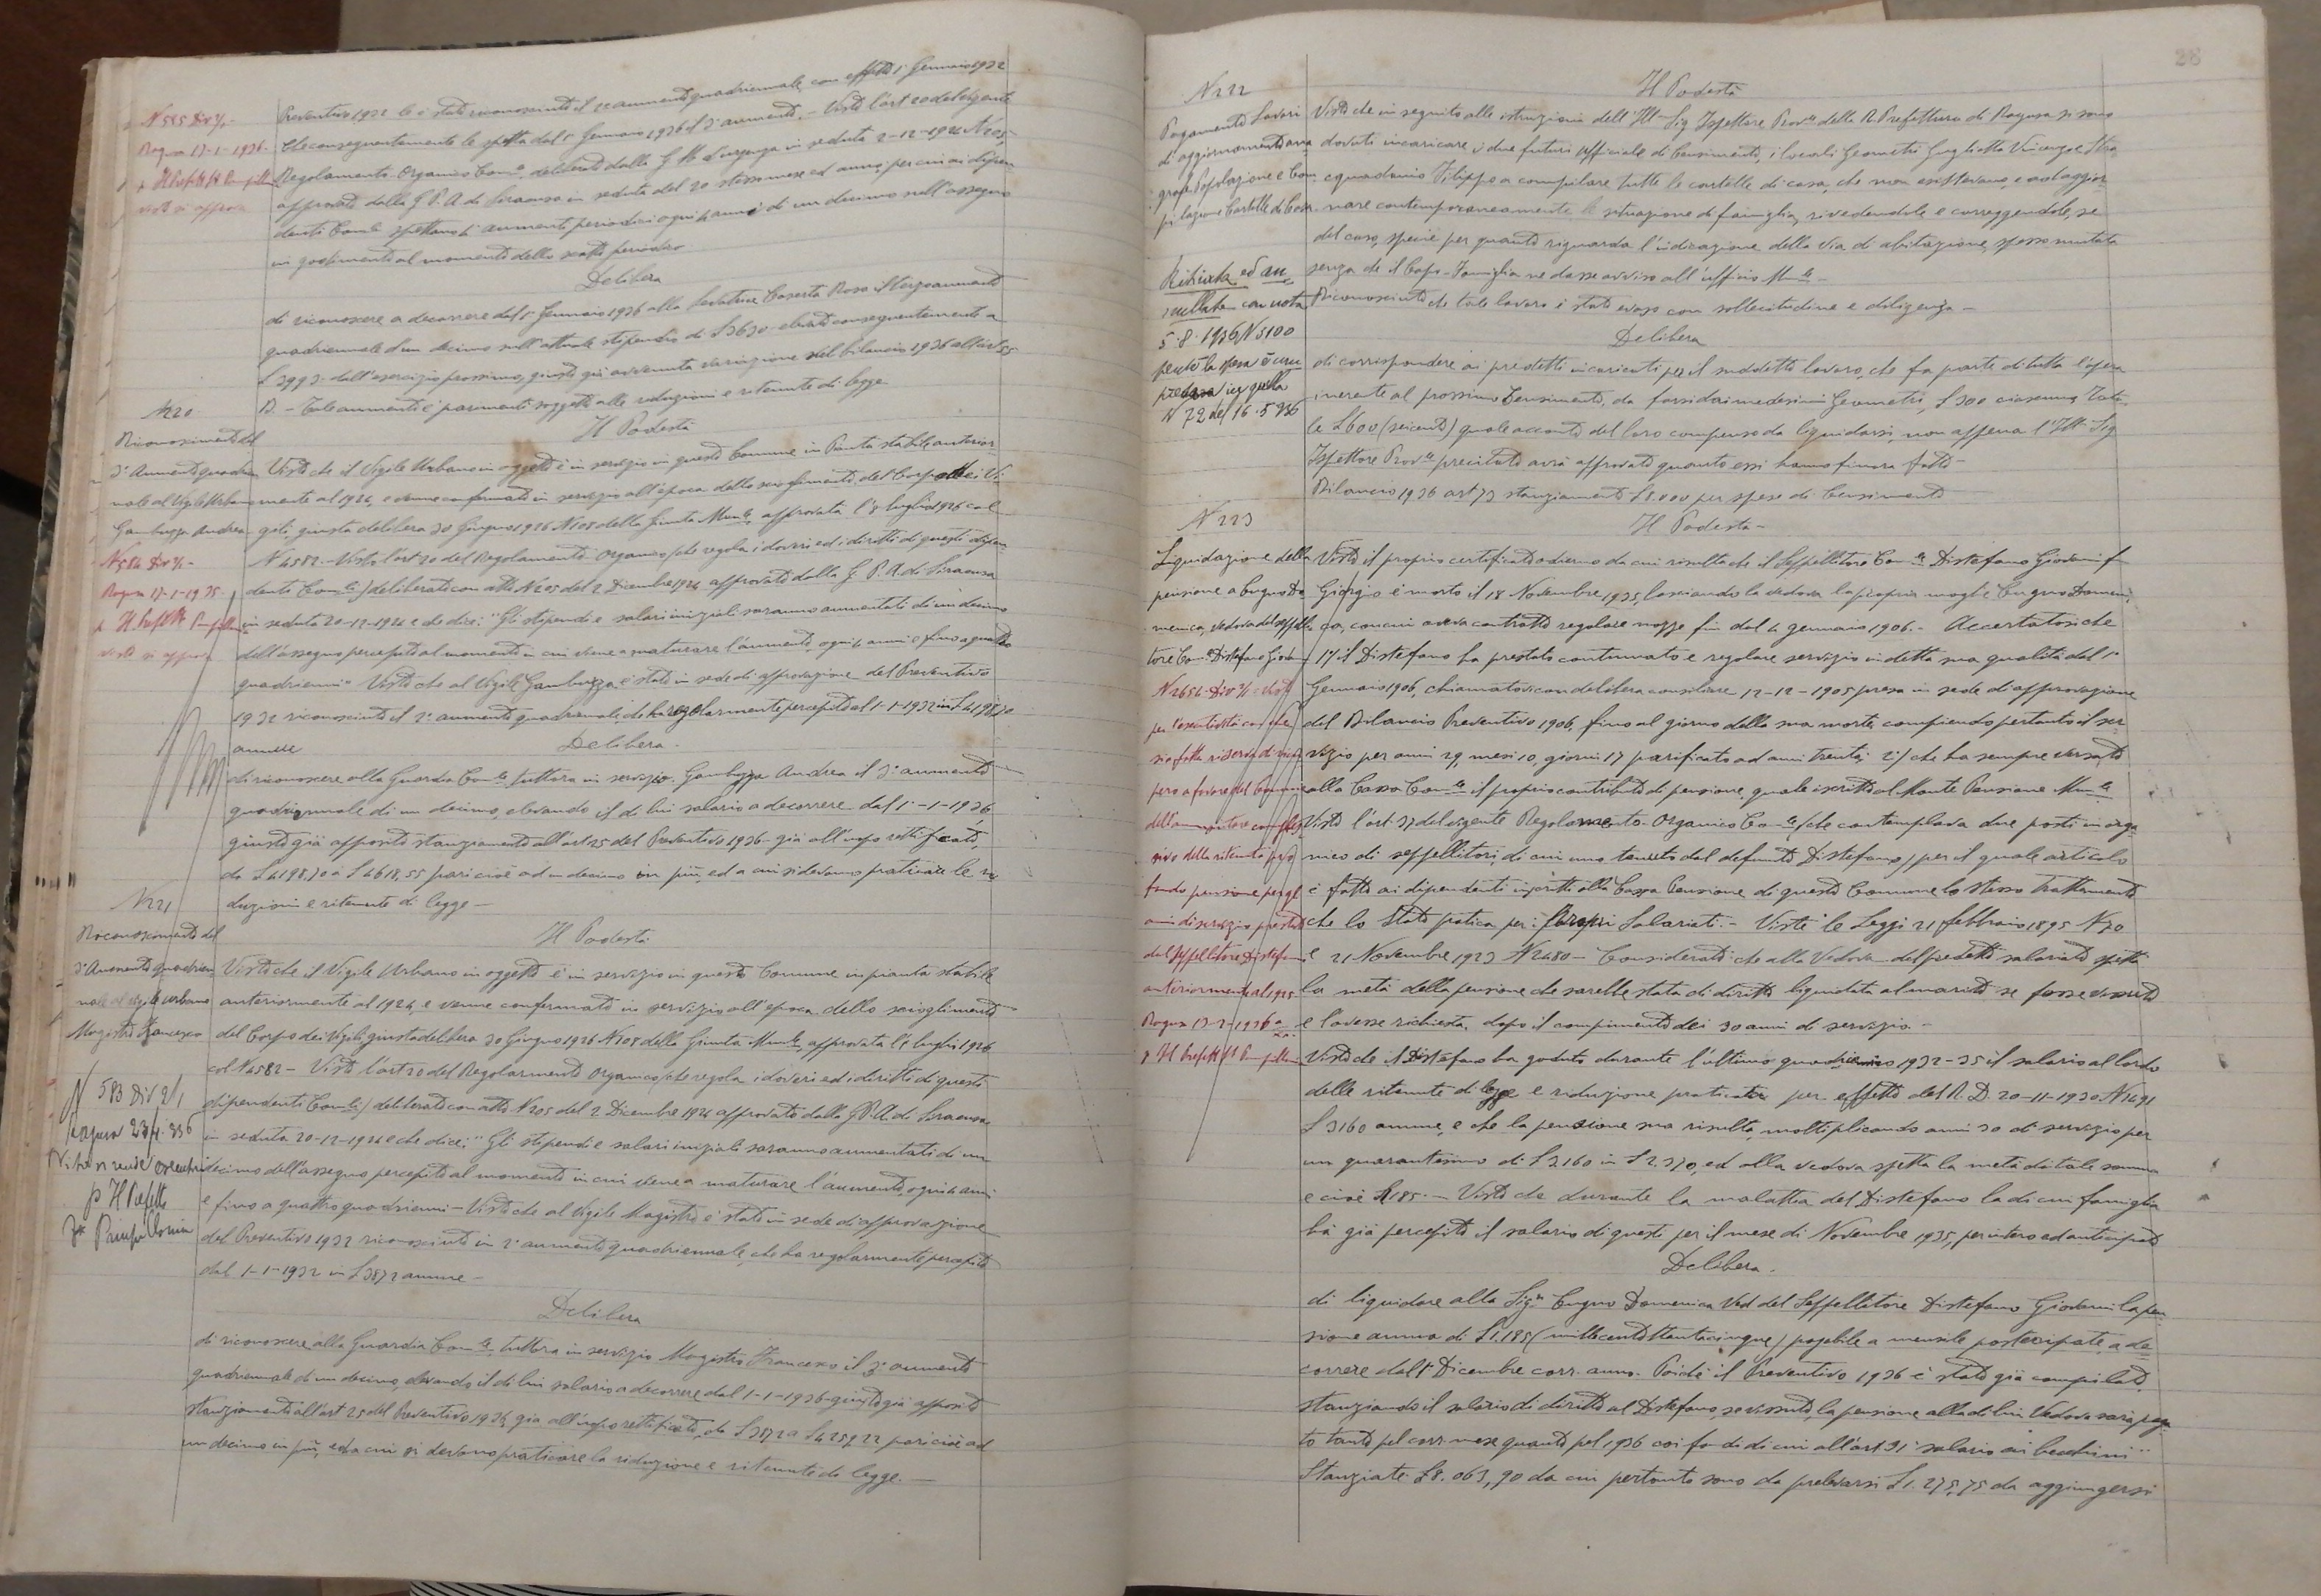 N 585 Div 2/1 -
Ragusa 17-1-1936.
p Il Prefetto f/to Pampillonia
visto si approva
Preventivo 1932 le è stato riconosciuto il 2° aumento quadriennale, con effetto 1° Gennaio 1932
che conseguentemente le spetta dal 1° Gennaio 1936 il 3° aumento. - Visto l'art 20 del vigente
Regolamento Organico Com.le deliberato dalla G. M. d'urgenza in seduta 2-12-1924 N 205,
approvato dalla G. P. A. di Siracusa in seduta del 20 stesso mese ed anno, per cui ai dipen
denti Com.li spettano aumenti periodici ogni 4 anni di un decimo sull'assegno
in godimento al momento dello scatto periodico
Delibera
di riconoscere a decorrere dal 1° Gennaio 1936 alla levatrice Caserta Rosa il terzo aumento
quadriennale d'un decimo sull'attuale stipendio di £ 3630 elevato conseguentemente a
£ 3993. dall'esercizio prossimo, giusta già avvenuta variazione nel bilancio 1936 all'art 55
B. - Tale aumento è parimenti soggetto alle riduzioni e ritenute di legge
N 220
Riconoscimento del
3° Aumento quadrien
nale al Vigile Urbano
Gambuzza Andrea
N 584 Div 2/1 -
Ragusa 17-1-1936.
p Il Prefetto Pampillonia
visto si approva
Il Podestà
Visto che il Vigile Urbano in oggetto è in servizio in questo Comune in Pianta stabile anterior
mente al 1924, e venne confermato in servizio all'epoca dello scioglimento del Corpo dei Vi
gili, giusta delibera 30 Giugno 1926 N 108 della Giunta Mun.le, approvata l'8 luglio 1926 col
N 4582. - Visto l'art 20 del Regolamento Organico (che regola i doveri ed i diritti di questi dipen
denti Com.li) deliberato con atto N 205 del 2 Dicembre 1924 approvato dalla G. P. A. di Siracusa
in seduta 20-12-1924 e che dice: "Gli stipendi e salari iniziali saranno aumentati di un decimo
dell'assegno percepito al momento in cui viene a maturare l'aumento, ogni 4 anni e fino a quattro
quadrienni" Visto che al Vigile Gambuzza è stato in sede di approvazione del Preventivo
1932 riconosciuto il 2° aumento quadriennale che ha regolarmente percepito dal 1-1-1932 in £ 4198,70
annue
Delibera.
di riconoscere alla Guardia Com.le tuttora in servizio Gambuzza Andrea il 3° aumento
quadriennale di un decimo, elevando il di lui salario a decorrere dal 1°-1-1936
giusto già apposito stanziamento all'art 25 del Preventivo 1936 già all'uopo rettificato,
da £ 4198,70 a £ 4618,55 pari cioè ad un decimo in più, ed a cui si devono praticare le ri
duzioni e ritenute di legge -
N 221
Riconoscimento del
3° Aumento quadrien
nale al vigile urbano
Magistro Francesco
N 583 Div 2/1
Ragusa
Visto si rende esecutivo
p Il Prefetto
f/to Pampillonia
Il Podestà
Visto che il Vigile Urbano in oggetto è in servizio in questo Comune in pianta stabile
anteriormente al 1924, e venne confermato in servizio all'epoca dello scioglimento
del Corpo dei Vigili, giusta delibera 30 Giugno 1926 N 108 della Giunta Mun.le, approvata l'8 luglio 1926
col N 4582 - Visto l'art 20 del Regolamento Organico (che regola i doveri ed i diritti di questi
dipendenti Com.li) deliberato con atto N 205 del 2 Dicembre 1924 approvato dalla G.P.A. di Siracusa
in seduta 20-12-1924 e che dice: "Gli stipendi e salari iniziali saranno aumentati di un
decimo dell'assegno percepito al momento in cui viene a maturare l'aumento, ogni 4 anni
e fino a quattro quadrienni - Visto che al Vigile Magistro è stato in sede di approvazione
del Preventivo 1932 riconosciuto in 2° aumento quadriennale, che ha regolarmente percepito
dal 1-1-1932 in £ 3872 annue -
Delibera
di riconoscere alla Guardia Com.le tuttora in servizio Magistro Francesco il 3° aumento
quadriennale di un decimo, elevando il di lui salario a decorrere dal 1-1-1936 giusto già apposito
stanziamento all'art 25 del Preventivo 1936, già all'uopo rettificato, da £ 3872 a £ 4259,22 pari cioè ad
un decimo in più, ed a cui si devono praticare la riduzione e ritenute di legge. -
28
N 222
Pagamento Lavori
di aggiornamento ana
grafe Popolazione e Com
pilazione Cartelle di Casa
Richiesta ed an
nullata con nota
5-8-1936 N 5100
perchè la spesa è com
presa in quella
N 72 del 16-5-936
Il Podestà
Visto che in seguito alle istruzioni dell'Ill.mo Sig Ispettore Prov.le della R. Prefettura di Ragusa si sono
dovuti incaricare i due futuri ufficiali di Censimento, i locali Geometri Gugliotta Vincenzo e Stra
cquadanio Filippo a compilare tutte le cartelle di casa, che non esistevano, e ad aggior
nare contemporaneamente la situazione di famiglia, rivedendole e correggendole, se
del caso, specie per quanto riguarda l'indicazione della Via di abitazione, spesso mutata
senza che il Capo-Famiglia ne desse avviso all'ufficio Mun.le -
Riconosciuto che tale lavoro è stato evaso con sollecitudine e diligenza -
Delibera
di corrispondere ai predetti incaricati per il suddetto lavoro, che fa parte di tutta l'opera
inerente al prossimo Censimento, da farsi dai medesimi Geometri, £ 300 ciascuno, Tota
le £ 600 (seicento) quale acconto del loro compenso da liquidarsi, non appena l'Ill.mo Sig
Ispettore Prov.le precitato avrà approvato quanto essi hanno finora fatto -
Bilancio 1936 art 73 stanziamento £ 8.000 per spese di Censimento
N 223
Liquidazione della
pensione a Cugno Do
menica, vedova del seppelli
tore Com.le Distefano Giovanni
N 2654 Div 2/1 visto
per l'esecutività con che
sia fatta riserva di recu
pero a favore del Comune
dell'ammontare comples
sivo della ritenuta pro
fondo pensione per gli
anni di servizio prestati
dal Seppellitore Distefano
anteriormente al 1925
Ragusa 13-2-1936
p Il Prefetto f/to Pampillonia
Il Podestà -
Visto il proprio certificato odierno da cui risulta che il Seppellitore Com.le Distefano Giovanni fu
Giorgio è morto il 18 Novembre 1935, lasciando la vedova la propria moglie Cugno Domeni
ca, con cui aveva contratto regolare nozze fin dal 4 gennaio 1906. - Accertatosi che
1°) il Distefano ha prestato continuato e regolare servizio in detta sua qualità dal 1°
Gennaio 1906, chiamatovi con delibera consiliare 12-12-1905 presa in sede d'approvazione
del Bilancio Preventivo 1906, fino al giorno della sua morte, compiendo pertanto il ser
vizio per anni 29, mesi 10, giorni 17 parificato ad anni trenta; 2°) che ha sempre versato
alla Cassa Com.le il proprio contributo di pensione, quale iscritto al Monte Pensione Mun.le.
Visto l'art. 37 del vigente Regolamento Organico Com.le (che contemplava due posti in orga
nico di seppellitori, di cui uno tenuto dal defunto Distefano) per il quale articolo
è fatto ai dipendenti iscritti alla Cassa Pensione di questo Comune lo stesso trattamento
che lo Stato pratica per i propri Salariati. - Viste le Leggi 21 febbraio 1895 N 70
e 21 Novembre 1923 N 2480 - Considerato che alla Vedova del predetto salariato spetta
la metà della pensione che sarebbe stata di diritto liquidata al marito se fosse vissuto
e l'avesse richiesta, dopo il compimento dei 30 anni di servizio. -
Visto che il Distefano ha goduto durante l'ultimo quadriennio 1932-35 il salario al lordo
delle ritenute di legge e riduzione praticata per effetto del R. D. 20-11-1930 N 1491
£ 3160 annue, e che la pensione sua risulta, moltiplicando anni 30 di servizio per
un quarantesimo di £ 3160 in £ 2.370, ed alla vedova spetta la metà di tale somma
e cioè £ 1185. - Visto che durante la malattia del Distefano la di cui famiglia
ha già percepito il salario di questi per il mese di Novembre 1935, per intero ed anticipato
Delibera.
di liquidare alla Sig.ra Cugno Domenica Ved del Seppellitore Distefano Giovanni la pen
sione annua di £ 1.185 (millecentottantacinque) pagabile a mensile posticipate, a de
correre dal 1° Dicembre corr. anno. Poichè il Preventivo 1936 è stato già compilato,
stanziando il salario di diritto al Distefano, se vissuto, la pensione alla di lui Vedova sarà paga
to tanto pel corr. mese quanto pel 1936 coi fondi di cui all'art 31 "salario ai becchini"
Stanziate £ 8.063,90 da cui pertanto sono da prelevarsi £ 1.275,75 da aggiungersi